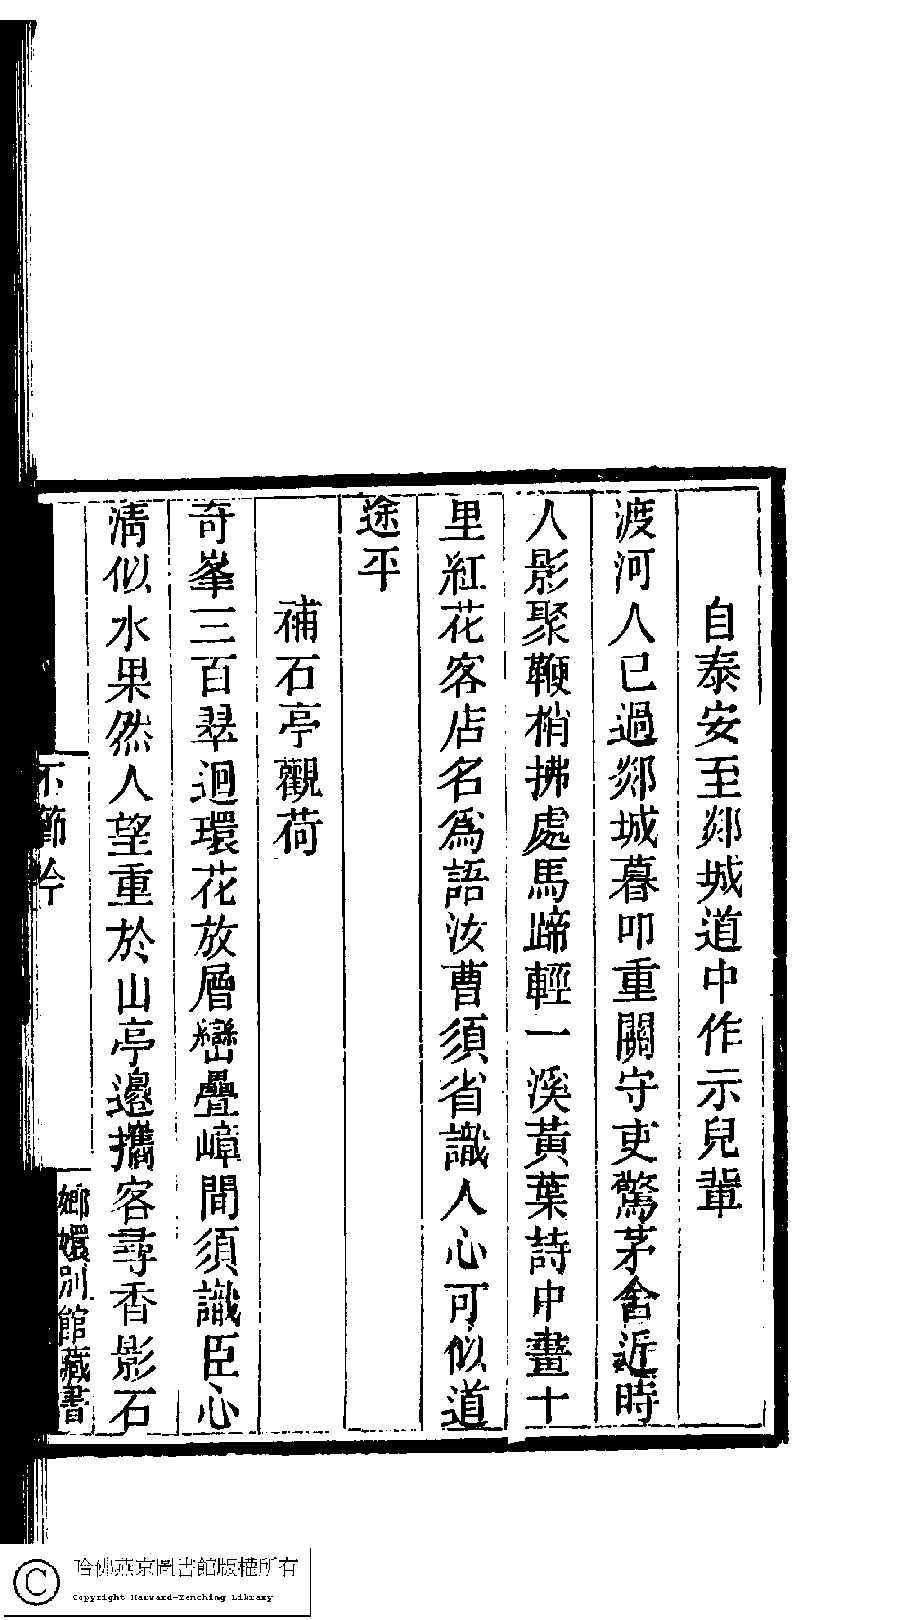 自泰安至郯城道中作示兒輩
渡河人已過郯城暮叩重關守吏驚茅舍近時
人影聚鞭梢拂處馬蹄輕一溪黃葉詩中畫十
里紅花客店名爲語汝曹須省識人心可似道
途平
補石亭觀荷
奇峯三百翠迴環花放層巒疊嶂間須識臣心
清似水果然人望重於山亭邊攜客尋香影石
不節吟
嫏嬛別館藏書
哈佛燕京圖書館版權所有
Copyright Harvard-Yenching Library